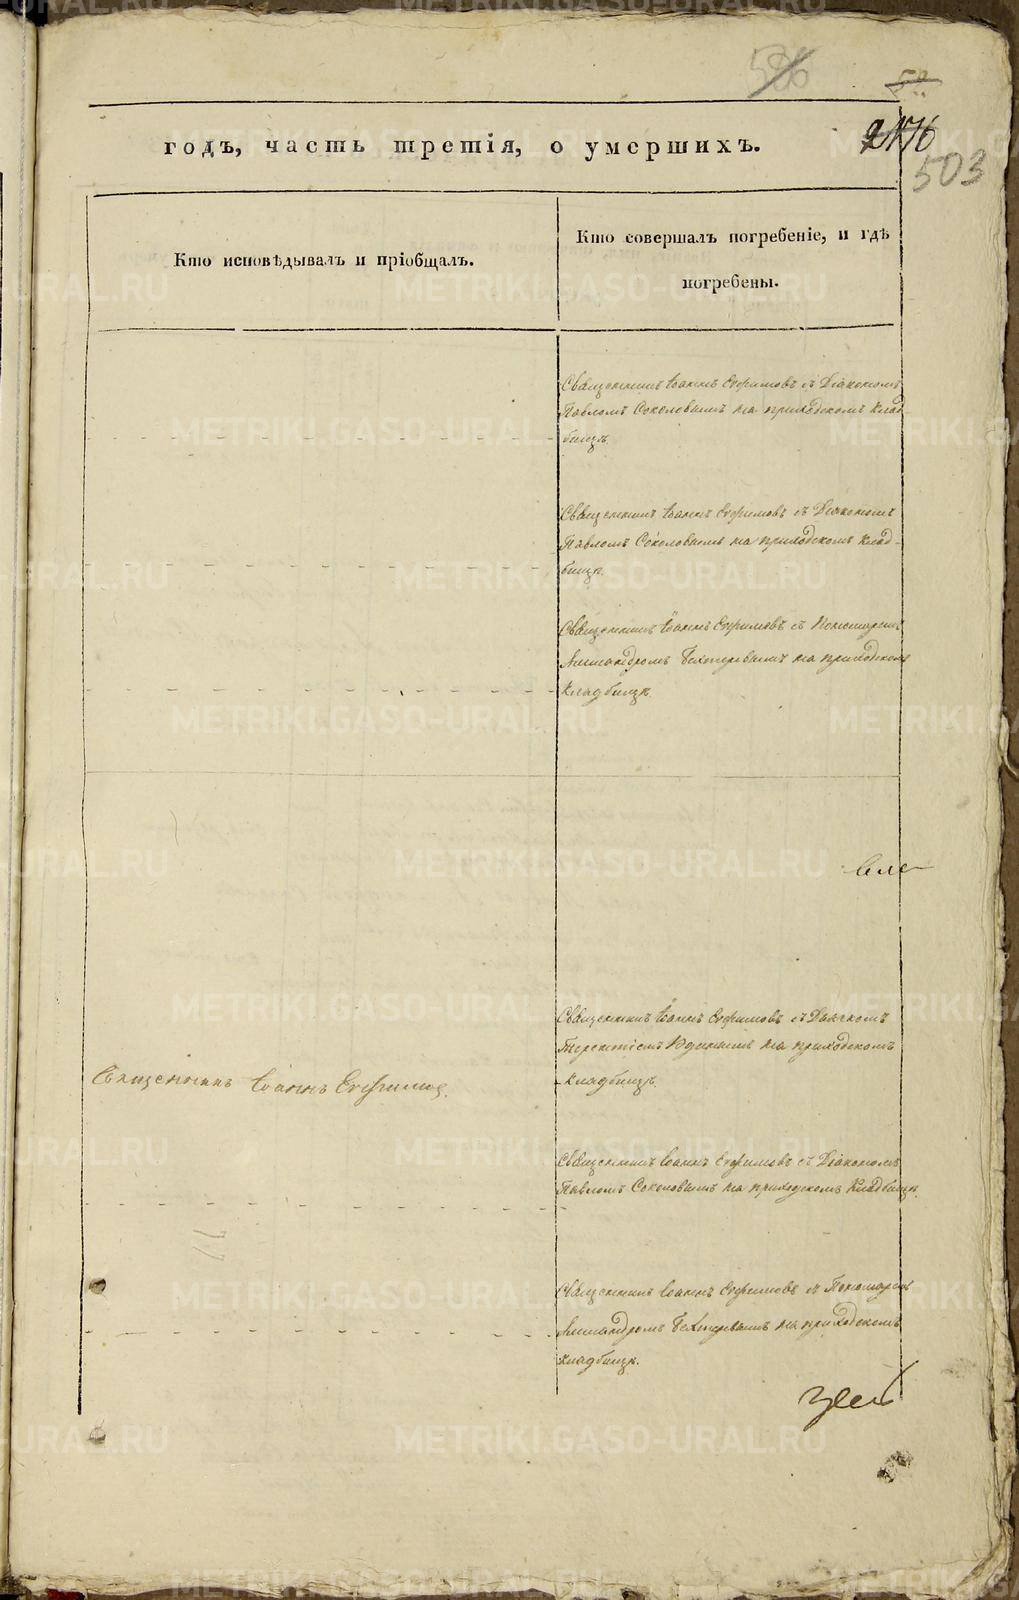 586
503
годъ, часть третія, о умершихъ.
Кто исповѣдывалъ и пріобщалъ.
Кто совершалъ погребеніе, и гдѣ
погребены.
Священникъ Іоаннъ Ефимовъ съ Діакономъ
Павломъ Соколовымъ на приходскомъ клад-
бищѣ.
Священникъ Іоаннъ Ефимовъ съ Діакономъ
Павломъ Соколовымъ на приходскомъ клад-
бищѣ.
Священникъ Іоаннъ Ефимовъ съ Пономаремъ
на приходскомъ
кладбищѣ.
Священникъ Іоаннъ Ефимовъ съ Дьячкомъ
Терентіемъ Юдинымъ на приходскомъ
кладбищѣ.
Священникъ Іоаннъ Ефимовъ.
Священникъ Іоаннъ Ефимовъ съ Діакономъ
Павломъ Соколовымъ на приходскомъ кладбищѣ.
Священникъ Іоаннъ Ефимовъ съ Пономаремъ
на приходскомъ
кладбищѣ.
METRIKI.GASO-URAL.RU